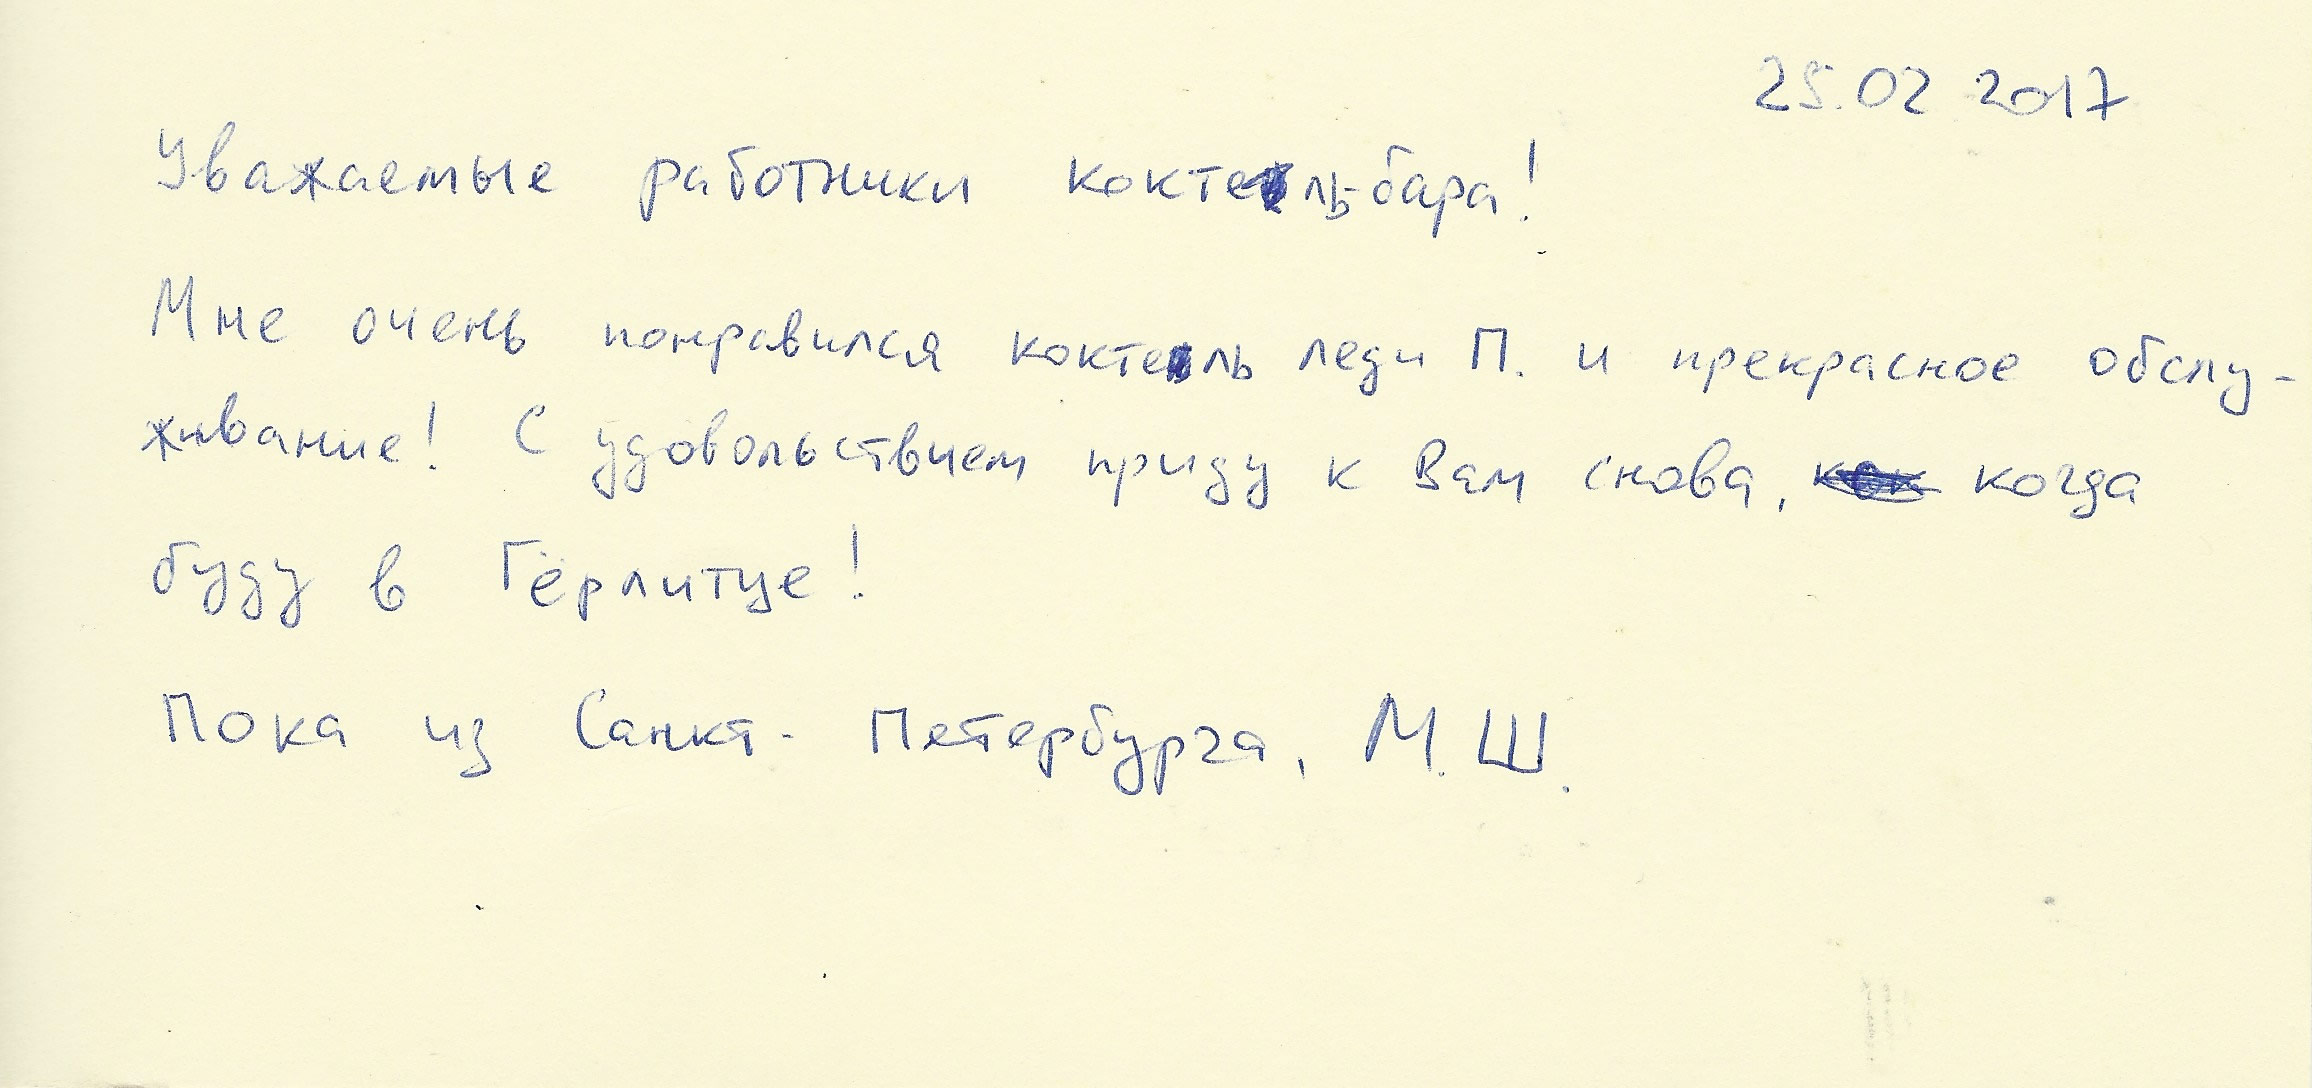 25.02 2017
Уважаемые работники коктейль-бара!
Мне очень понравился коктейль леди П. и прекрасное обслу-
живание! С удовольствием приду к Вам снова, когда
буду в Гёрлитце!
Пока из Санкт-Петербурга, М.Ш.